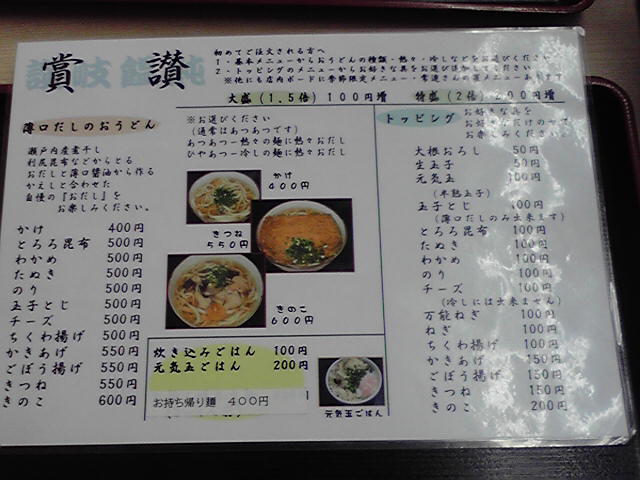 讃岐饂飩
賞讃
初めてご注文される方へ
1・基本メニューからおうどんの種類・熱々・冷しなどをお選びください
2・トッピングのメニューからお好きな具をお選び
※他にも店内ボードに季節限定メニュー・常連さんの裏メニューあります
大盛(1.5倍)100円増 特盛(2倍)200円増
薄口だしのおうどん
瀬戸内産煮干し
利尻昆布などからとる
おだしと薄口醤油から作る
かえしと合わせた
自慢の『おだし』を
お楽しみください。
かけ 400円
とろろ昆布 500円
わかめ 500円
たぬき 500円
のり 500円
玉子とじ 500円
チーズ 500円
ちくわ揚げ 500円
かきあげ 550円
ごぼう揚げ 550円
きつね 550円
きのこ 600円
※お選びください
(通常はあつあつです)
あつあつ―熱々の麺に熱々おだし
ひやあつ―冷しの麺に熱々おだし
かけ
400円
きつね
550円
きのこ
600円
炊き込みごはん 100円
元気玉ごはん 200円
お持ち帰り麺 400円
元気玉ごはん
トッピング
お好きな具を
お好きなだけのせて
お楽しみください
大根おろし 50円
生玉子 50円
元気玉 100円
(半熟玉子)
玉子とじ 100円
(薄口だしのみ出来ます)
とろろ昆布 100円
たぬき 100円
わかめ 100円
のり 100円
チーズ 100円
(冷しには出来ません)
万能ねぎ 100円
ねぎ 100円
ちくわ揚げ 100円
かきあげ 150円
ごぼう揚げ 150円
きつね 150円
きのこ 200円